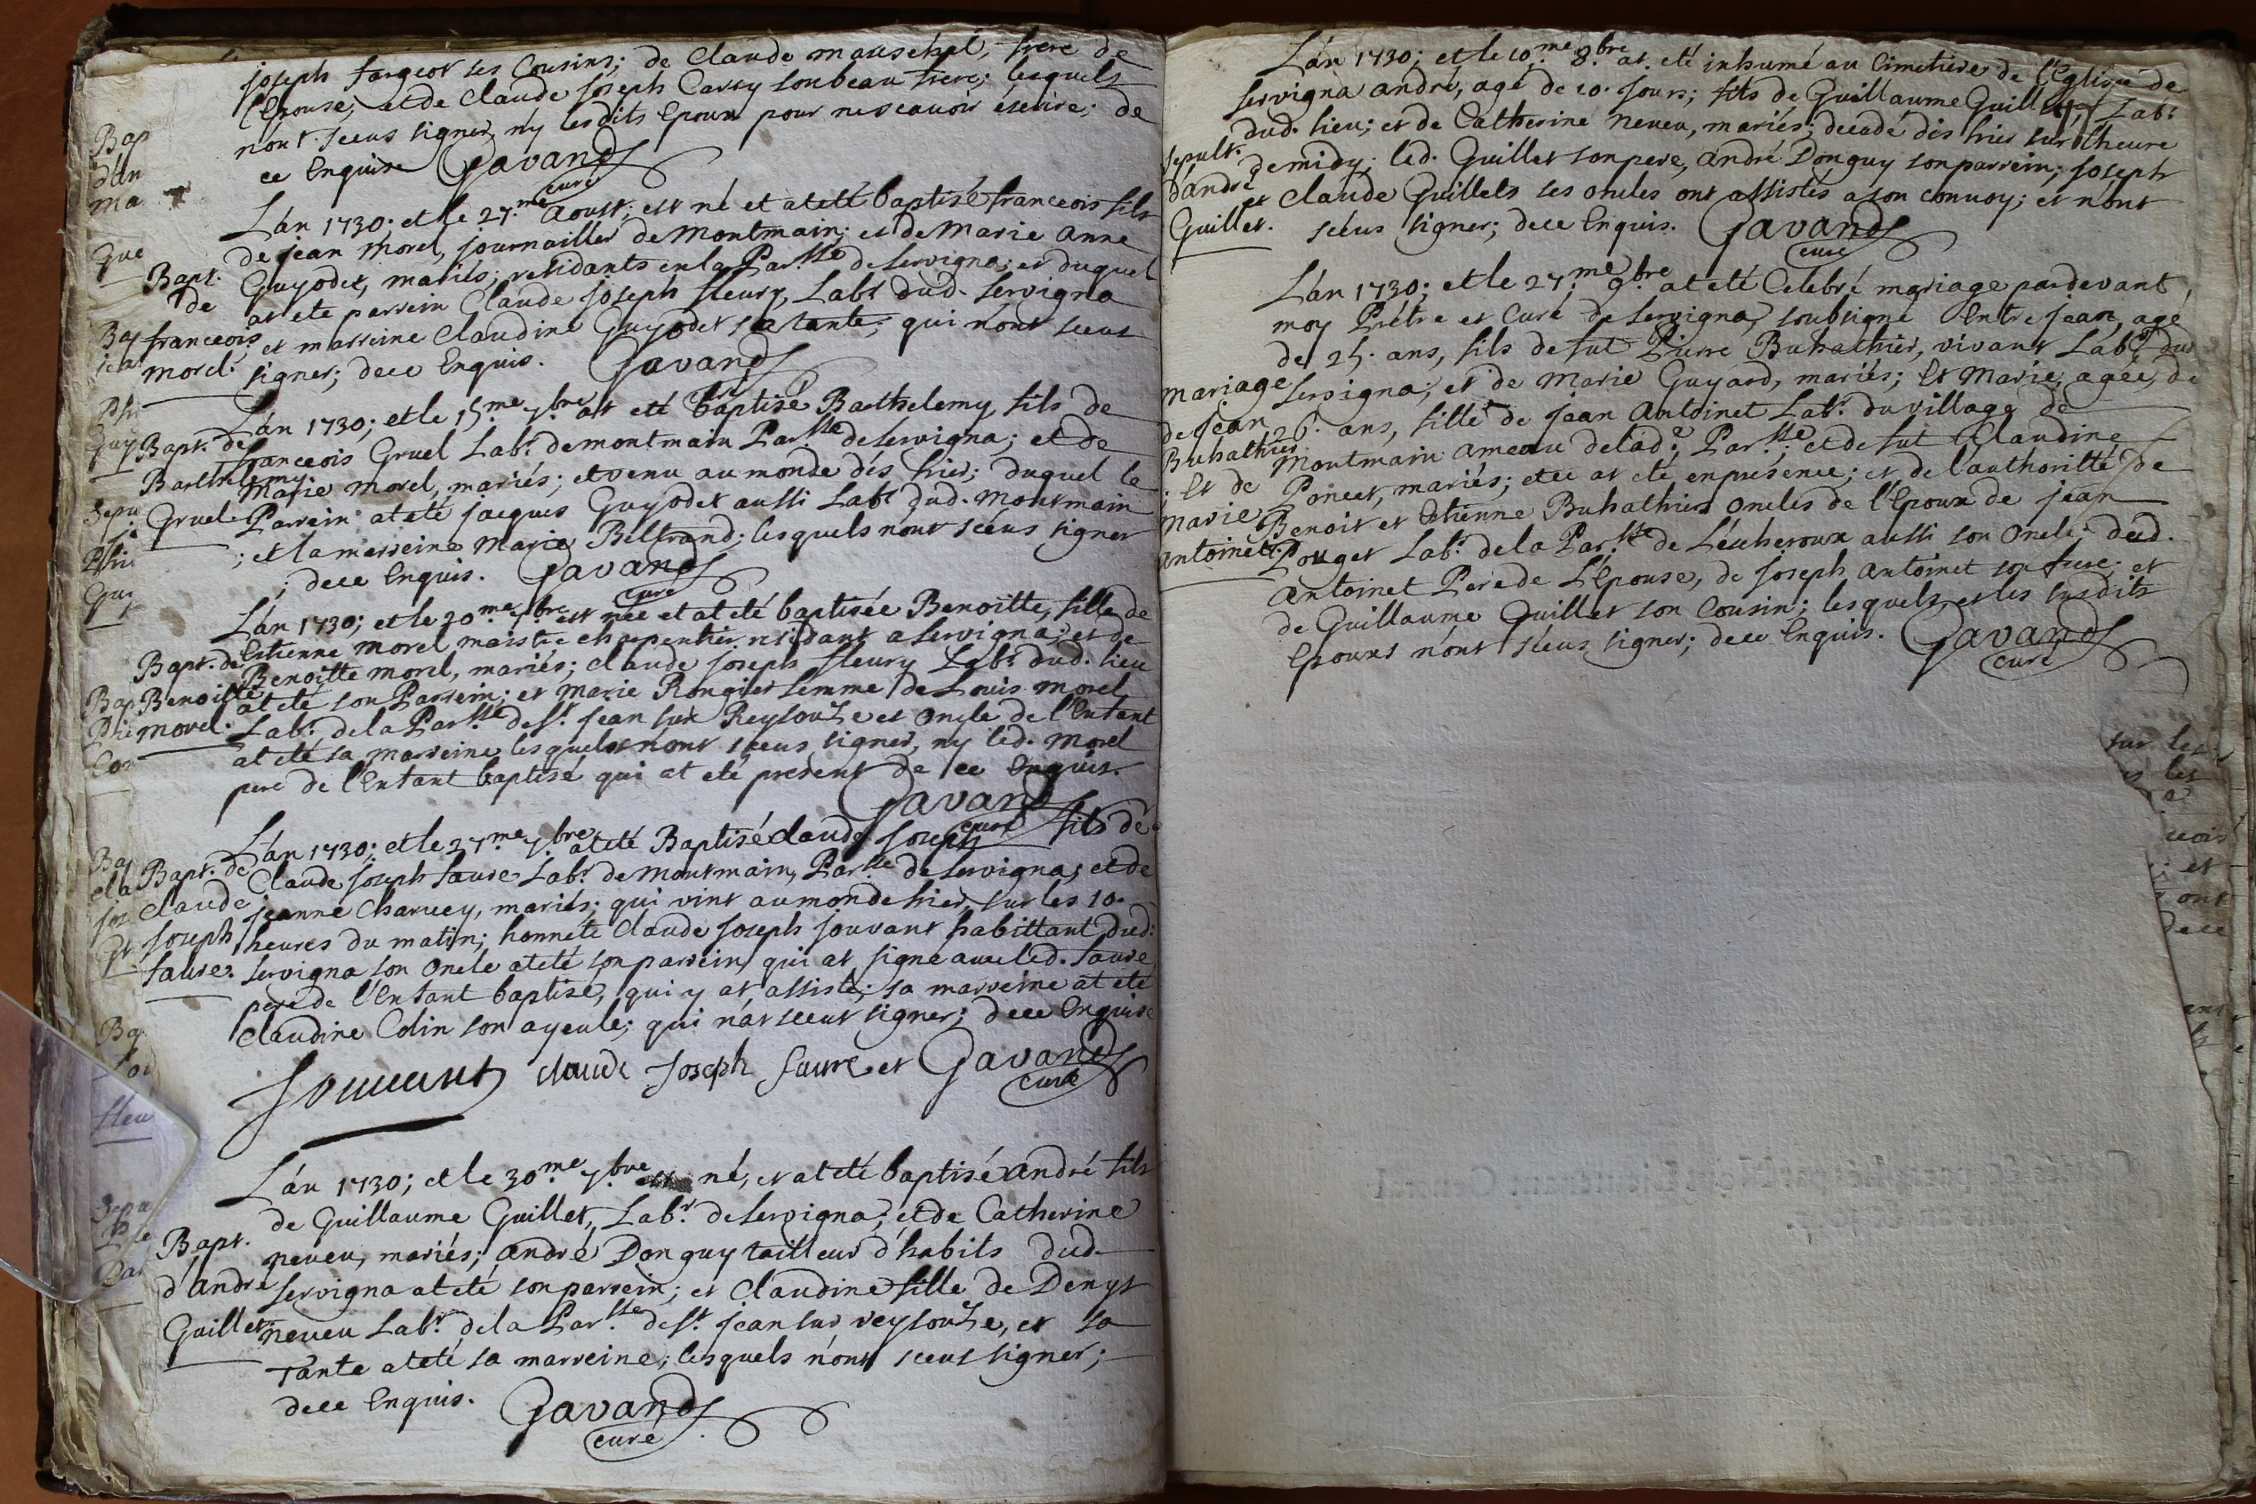 joseph fargeot ses Cousins; de Claude mareschal, frere de
l'Epouse, et de Claude joseph Carry son beau frere; lesquels
n'ont sceus signer, ny lesdits Epoux pour ne scavoir escrire; de
ce Enquise Gavand
curé
L'án 1730; et le 27.me Aoust; est né et at eté baptisé franceois fils
de jean Morel, journaillier de Montmain; et de Marie Anne
Bapt. Guyodet, mariés; residants en la Par.sse de Servigna; et duquel
de at eté parrein Claude joseph fleury Labr. dud. Servigna
franceois et marreine Claudine Guyodet sa tante; qui n'ont sceus
morel. signer; de ce Enquis. Gavand
L'án 1730; et le 15.me 7.bre at eté baptisé Barthelemy fils de
Bapt. de franceois Gruel Labr. de montmain Par.sse de Servigna; et de
Barthelemy Marie Morel, mariés; et venu au monde dés hier; duquel le
Gruel. Parrein at eté jacques Guyodet aussi Labr. dud. Montmain
; et la marreine Marie Beltrand; lesquels n'ont sceus signer
; de ce Enquis. Gavand
curé
L'án 1730; et le 20.me 7.bre est née et at eté baptisée Benoitte, fille de
Bapt. de Estienne Morel maistre charpentier residant a Servigna; et de
Benoitte Benoitte morel, mariés; Claude joseph fleury Labr. dud. lieu
morel. at eté son Parrein; et Marie Rongier femme de Louis morel
Labr. de la Par.sse de St. jean sur Reysouze et Oncle de l'Enfant
at eté sa marreine lesquels n'ont sceus signer, ny led. Morel
pere de l'Enfant baptisé qui at eté present de ce Enquis.
Gavand
curé
L'án 1730; et le 27.me 7.bre at eté Baptisé claude joseph fils de
Bapt. de Claude joseph faure Labr. de Montmain, Par.sse de Servigna; et de
Claude jeanne Charvey, mariés; qui vint au monde hier, sur les 10.
joseph heures du matin; honnéte Claude joseph jouvant habittant dud.
faure. Servigna son Oncle at eté son parrein qui at signé avec led. faure
pere de l'Enfant baptisé, qui y at assisté; sa marreine at eté
Claudine Colin son ayeule; qui n'at sceut signer; de ce Enquise
Jouvant claude joseph faure et Gavand
curé
L'án 1730; et le 30.me 7.bre né, et at eté baptisé André fils
de Guillaume Guillet, Labr. de Servigna; et de Catherine
Bapt. neveu, mariés; André Donguy tailleur d'habits dud.
d'André Servigna at eté son parrein; et Claudine fille de Denys
Guillet. neveu Labr. de la Par.sse de St. jean sur reysouze, et sa
Tante at eté sa marreine; lesquels n'ont sceus signer;
de ce Enquis. Gavand
curé
L'án 1730; et le 10.me 8.bre at eté inhumé au Cimetiere de l'Eglise de
Servigna André, agé de 10. jours; fils de Guillaume Guillet, Labr.
dud. lieu; et de Catherine neveu, mariés; decedé dés hier sur l'heure
sepult. de midy; led. Guillet son pere, André Donguy son parrein, joseph
d'André et Claude Guillets ses oncles ont assistés a son convoy; et n'ont
Guillet. sceus signer; de ce Enquis. Gavand
curé
L'án 1730; et le 27.me 9.bre at eté Celebré mariage pardevant
moy Prétre et Curé de Servigna soubsigné Entre jean, agé
de 25. ans, fils de fut Pierre Buhathier, vivant Labr. dud
mariage Servigna; et de Marie Guyard, mariés; Et Marie, agée, de
de jean 26. ans, fille de jean Antoinet Labr. du village de
Buhathier Montmain ameau de lad.e Par.sse et de fut Claudine
Et de Poncet, mariés; et ce at eté en presence; et de l'authoritté de
marie Benoit et Estienne Buhathier Oncles de l'Epoux de jean
antoinet. Pouget Labr. de la Par.sse de Léscheroux aussi son Oncle; dud.
Antoinet Pere de L'Epouse, de joseph Antoinet son frere; et
de Guillaume Guillet son Cousin; lesquels et les susdits
Epoux n'ont sceus signer; de ce Enquis. Gavand
curé